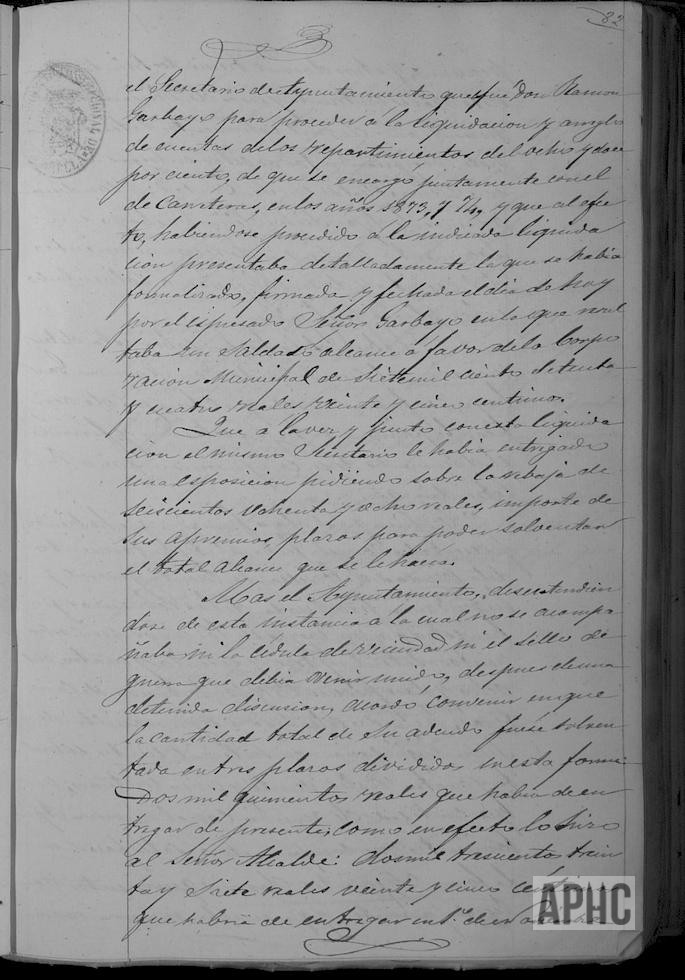 82
el Secretario de Ayuntamiento que fué Don Ramon
Garbayo para proceder á la liquidacion y arreglo
de cuentas de los repartimientos del ocho y doce
por ciento, de que se encargó juntamente con el
de Carreteras, en los años 1873, y 74, y que al efec
to, habiendose procedido á la indicada liquida
cion presentaba detalladamente la que se habia
formalizado, firmada y fechada el dia de hoy
por el espresado Señor Garbayo en la que resul
taba un Saldo ó alcance á favor de la Corpo
racion Municipal de siete mil ciento setenta
y cuatro reales veinte y cinco centimos.
Que á la vez y junto con esta liquida
cion el mismo Secretario le habia entregado
una esposicion pidiendo sobre la rebaja de
seiscientos ochenta y ocho reales, importe de
sus apremios, plazos para poder solventar
el total alcance que se le hacia.
Mas el Ayuntamiento, desentendien
dose de esta instancia á la cual no se acompa
ñaba ni la cédula de vecindad ni el sello de
guerra que debia venir unido, despues de una
detenida discusion, acordó convenir en que
la cantidad total de su adeudo fuese solven
tada en tres plazos divididos en esta forma:
Dos mil quinientos reales que habia de en
tregar de presente, como en efecto lo hizo
al Señor Alcalde: dos mil trescientos trein
ta y siete reales veinte y cinco
que habria de entregar en 1.º de
APHC